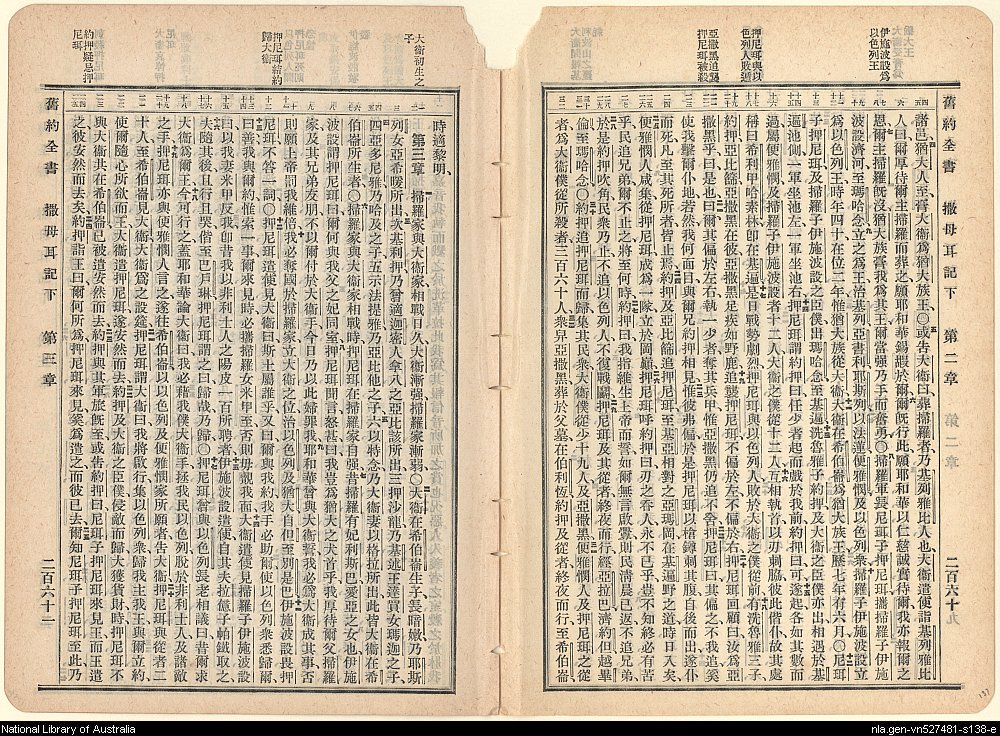 伊施波設爲
以色列王
押尼珥與以
色列人敗遁
亞撒黑追襲
押尼珥被殺
舊約全書 撒母耳記下 第二章
諸邑猶大人至膏大衞爲猶大族王○或告大衞曰葬掃羅者乃基列雅比人也大衞遣使詣基列雅比
人曰爾厚待爾主掃羅而葬之願耶和華錫嘏於爾爾既行此願耶和華以仁慈誠實待爾我亦報爾之
恩爾主掃羅既沒猶大族膏我爲其王爾當强乃手而奮勇○掃羅軍長尼珥子押尼珥攜掃羅子伊施
波設濟河至瑪哈念立之爲王治基列亞書利耶斯列以法蓮便雅憫及以色列衆掃羅子伊施波設立
爲以色列王時年四十在位二年惟猶大族從大衞大衞在希伯崙爲猶大族王歷七年有六月○尼珥
子押尼珥及掃羅子伊施波設之臣僕出瑪哈念至基遍洗魯雅子約押及大衞之臣僕亦出相遇於基
遍池側一軍坐池左一軍坐池右押尼珥謂約押曰任少者起而戲於我前約押曰可遂起各如其數而
過屬便雅憫及掃羅子伊施波設者十二人大衞之僕從十二人互相執首以刃刺脇彼此偕仆故其處
稱曰希利甲哈素林卽在基遍是日戰勢劇烈押尼珥與以色列人敗於大衞之僕從前有洗魯雅三子
約押亞比篩亞撒黑在彼亞撒黑足疾如野鹿追襲押尼珥不偏於左不偏於右押尼珥回顧曰汝爲亞
撒黑乎曰是也曰爾其偏於左右執一少者奪其兵甲惟亞撒黑仍追不舍押尼珥又曰其偏之不我追奚
使我擊爾仆地若然我何面目與爾兄約押相見惟彼弗偏於是押尼珥以槍鐏刺其腹自後而出遂仆
而死凡至其死所者皆止焉約押及亞比篩追押尼珥至基亞相對之亞瑪岡在基遍野之道時日入矣
便雅憫人咸集從押尼珥成爲一隊立於岡巓押尼珥呼約押曰刃之呑人永不已乎豈不知終必有苦
乎民追兄弟爾不止之將至何時約押曰我指維生上帝而誓如爾無言啟釁則民淸晨已返不追兄弟
於是約押吹角民衆乃止不追以色列人不復戰鬬押尼珥及其從者終夜而行經亞拉巴濟約但越畢
倫至瑪哈念○約押追押尼珥而歸集其民衆大衞僕從少十九人及亞撒黑惟大衞僕從擊便雅憫與
者爲大衞僕從所殺者三百六十人衆舁亞撒黑葬於父墓在伯利恆約押及從者終夜而行至希伯崙
二百六十九
大衞初生之
子
押尼珥結約
歸大衞
約押疑忌押
尼珥
時適黎明
第三章 掃羅家與大衞家相戰日久大衞漸強掃羅家漸弱○大衞在希伯崙生子長暗嫩乃耶斯
列女亞希暖所出次基利押乃曾適迦密人拿八之亞比該所出三押沙龍乃基述王達買女瑪迦之子
四亞多尼雅乃哈及之子五示法提雅乃亞比他之子六以特念乃大衞妻以格拉所出此皆大衞在希
伯崙所生者○掃羅家與大衞家相戰時押尼珥在掃羅家自强昔掃羅有妃利斯巴愛亞之女也伊施
波設謂押尼珥曰爾何與我父之妃同室押尼珥聞言怒甚曰我豈爲猶大之犬首乎我厚待爾父掃羅
家及其兄弟友朋不以爾付於大衞手今日乃以此婦罪我耶和華曾與大衞誓我必爲大衞成其事否
則願上帝罰我維倍我必奪國於掃羅家立大衞之位治以色列及猶大自但至別是巴伊施波設畏押
尼珥不答一詞○押尼珥遣使見大衞曰斯土屬誰乎又曰爾與我約我手必助爾使以色列衆悉歸爾
曰善我與爾約惟索一事爾來見時必攜掃羅女米甲至否則毋覲我面大衞遣使見掃羅子伊施波設
曰以我妻米甲反我卽昔我以非利士人之陽皮一百所聘者伊施波設遣使自其夫拉億子帕鐵取之
夫隨其後且行且哭偕至巴戶琳押尼珥謂之曰歸哉乃歸○押尼珥曾與以色列長老相議曰昔爾求
大衞爲爾王今可行之蓋耶和華論大衞曰我必藉我僕大衞手拯我民以色列脫於非利士人及諸敵
之手押尼珥亦與便雅憫人言之遂往希伯崙以以色列及便雅憫家所願者告大衞押尼珥與從者二
十人至希伯崙見大衞大衞爲之設筵押尼珥謂大衞曰我將歐行集以色列衆歸我主我王與爾立約
使爾隨心所欲而王大衞遣押尼珥遂安然而去約押及大衞之臣僕侵敵而歸大獲貨財時押尼珥不
與大衞共在希伯崙已被遣安然而去約押與其軍旅旣至或告約押曰尼珥子押尼珥來見王而王遣
之彼安然而去矣約押詣王曰爾何所爲押尼珥來見奚爲遣之而彼已去爾知尼珥子押尼珥至此乃
舊約全書 撒母耳記下 第三章
二百六十一
137
National Library of Australia
nla.gen-vn527481-s138-e